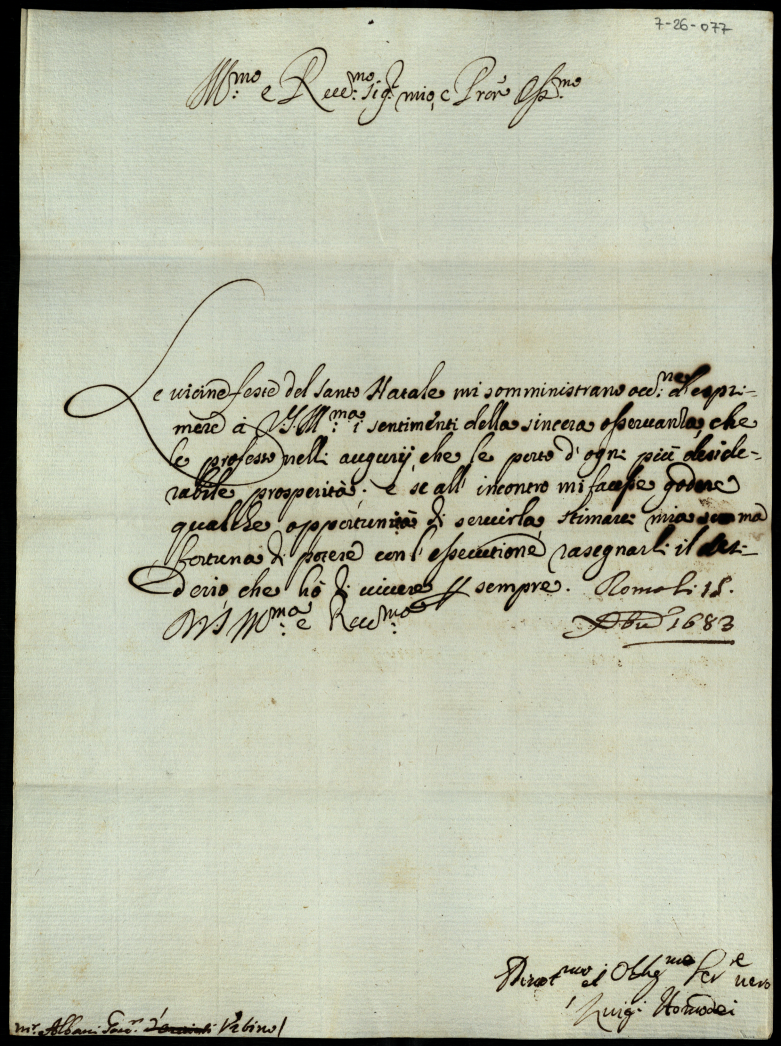 7-26-077
Ill.mo e Reu.mo Sig.r mio, e Pron Oss.mo
Le uicine feste del Santo Natale mi somministrano occ.ne di espri-
mere à V.S. Ill.ma i sentimenti della sincera osseruanza, che
le professo nelli augurij che le porto d'ogni più deside-
rabile prosperità; e se all'incontro mi facesse godere
qualche opportunità di seruirla, stimarei mia somma
fortuna di potere con l'essecutione rasegnarli il desi-
derio, che hò di uiuere sempre. Roma li 18.
D V.S. Ill.ma e Reu.ma Xbre 1683
Diuot.mo et Oblig.mo Ser.e uero
Luigi Homodei
m.r Albani Gou.r Vrbino